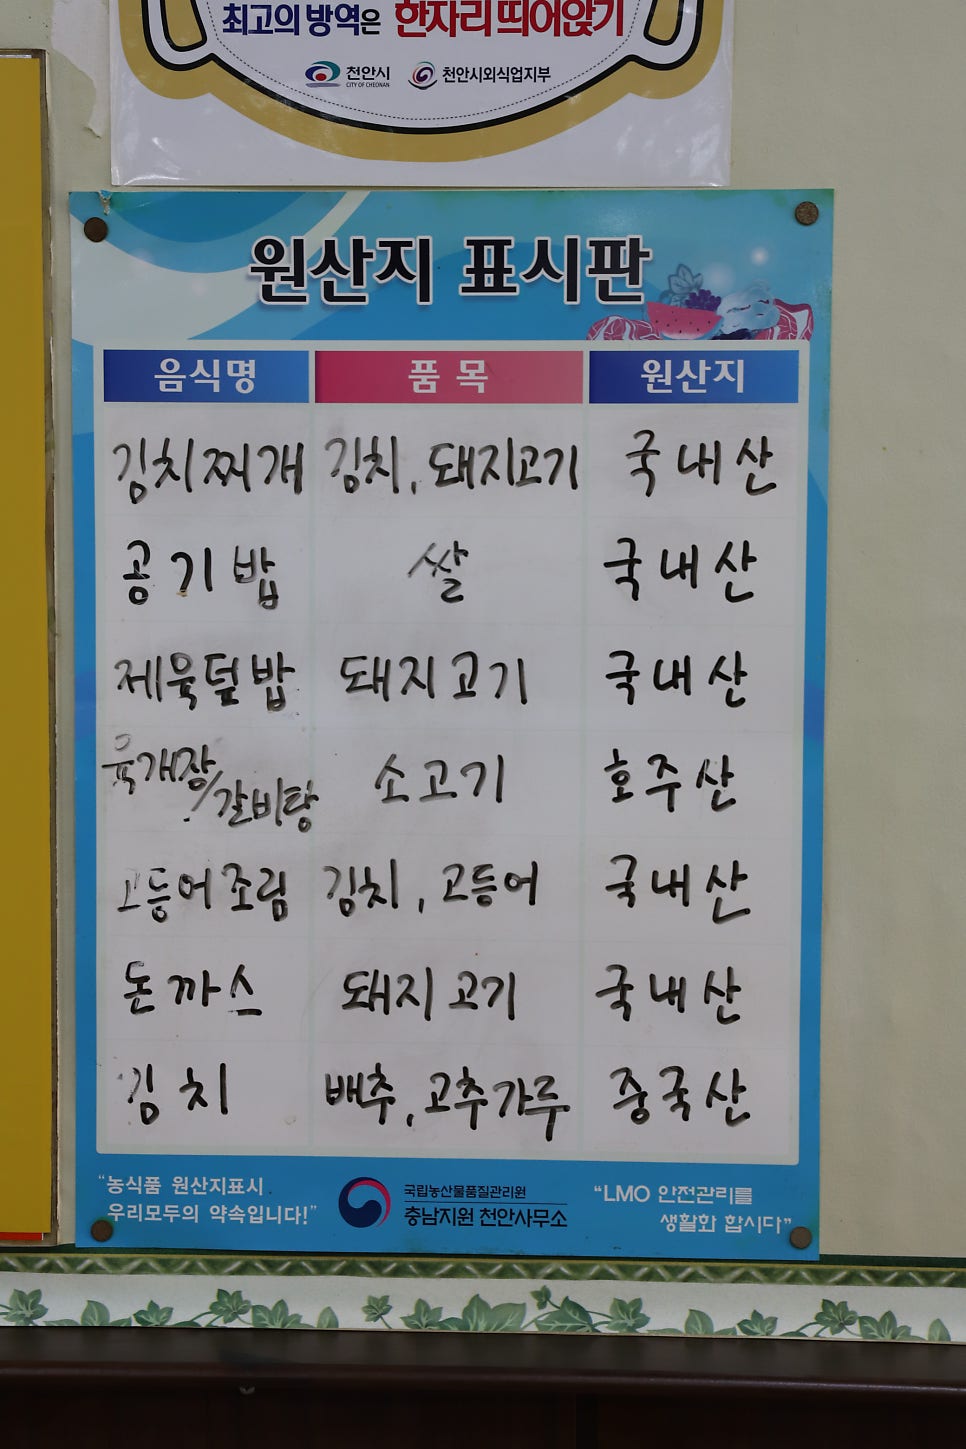 최고의 방역은 한자리 띄어앉기
천안시 CITY OF CHEONAN 천안시외식업지부
원산지 표시판
음식명 품목 원산지
김치찌개 김치, 돼지고기 국내산
공기밥 쌀 국내산
제육덮밥 돼지고기 국내산
육개장/갈비탕 소고기 호주산
고등어조림 김치, 고등어 국내산
돈까스 돼지고기 국내산
김치 배추, 고추가루 중국산
“농식품 원산지표시
우리모두의 약속입니다!”
국립농산물품질관리원
충남지원 천안사무소
“LMO 안전관리를
생활화 합시다”